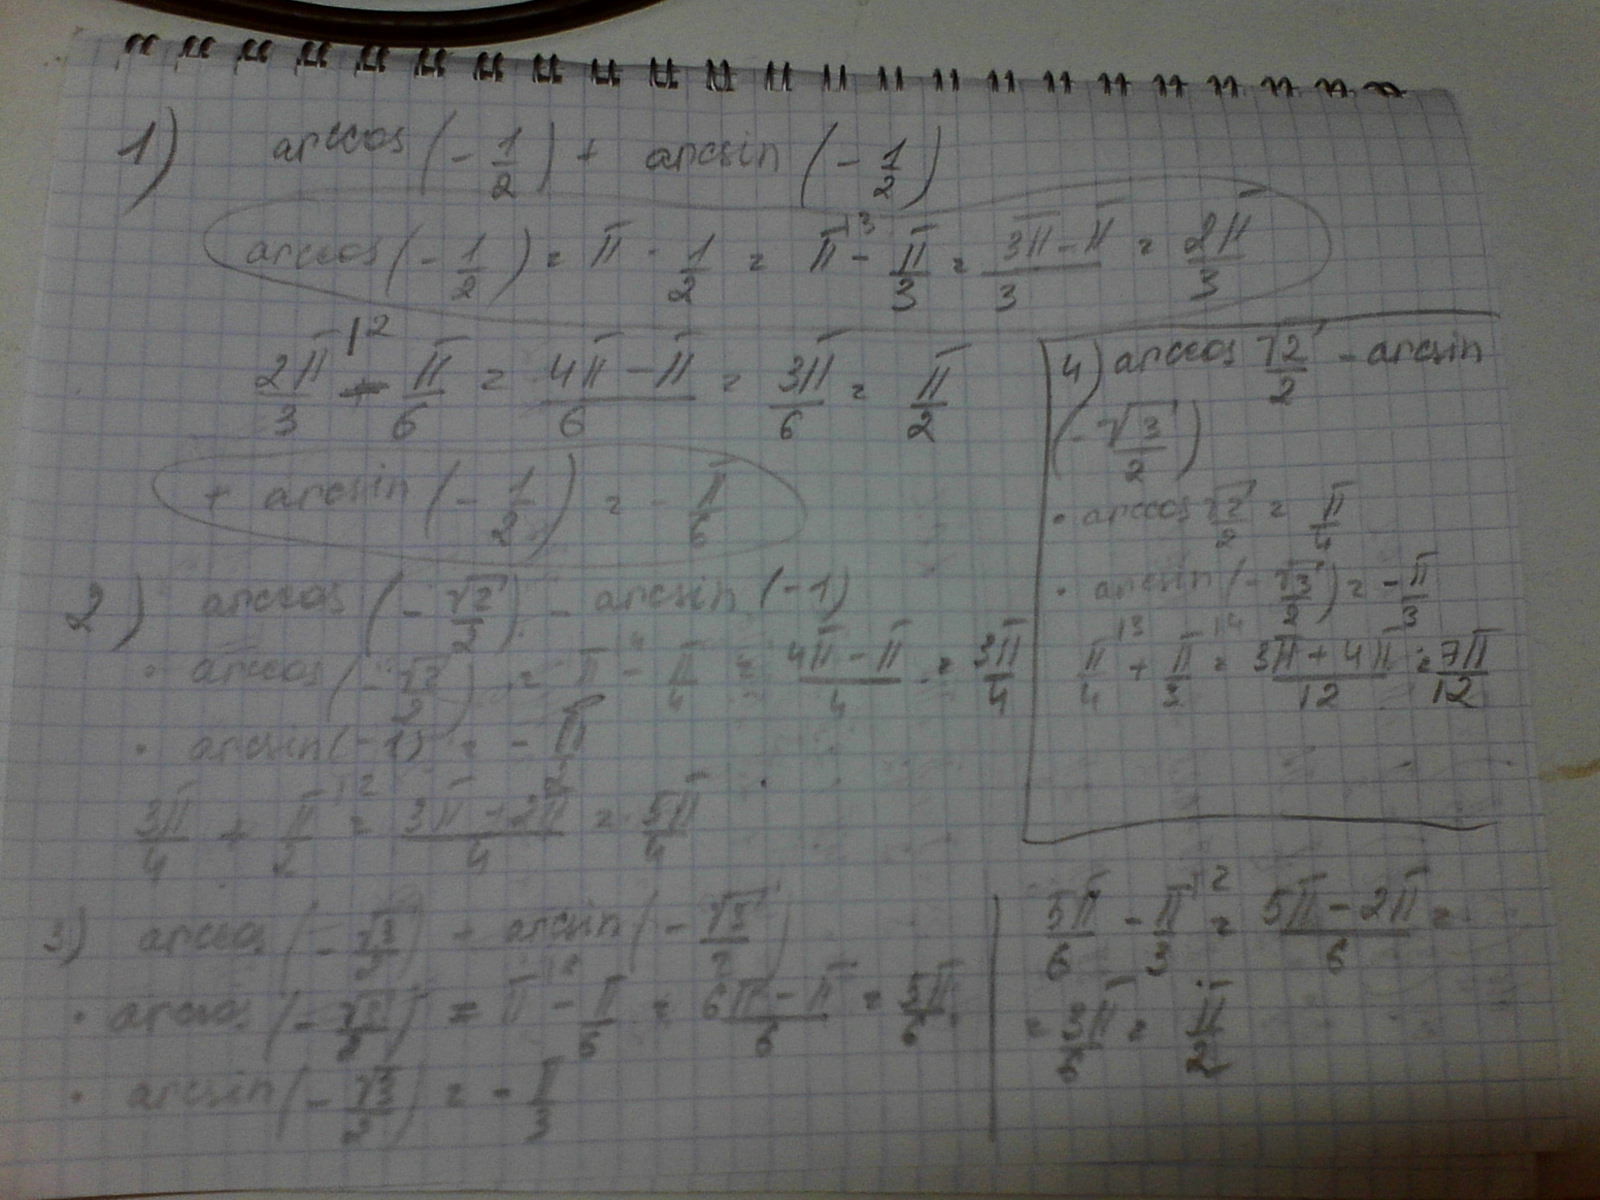 1) arccos (- 1/2) + arcsin (- 1/2)
arccos (- 1/2) = π - 1/2 = π |3 - π/3 = (3π - π)/3 = 2π/3
2π/3 |2 - π/6 = (4π - π)/6 = 3π/6 = π/2
+ arcsin (- 1/2) = - π/6
2) arccos (- √2/2) - arcsin (-1)
• arccos (- √2/2) = π |4 - π/4 = (4π - π)/4 = 3π/4
• arcsin (-1) = - π/2
3π/4 + π/2 |2 = (3π + 2π)/4 = 5π/4
3) arccos (- √3/2) + arcsin (- √3/2)
• arccos (- √3/2) = π - π/6 = (6π - π)/6 = 5π/6
• arcsin (- √3/2) = - π/3
5π/6 - π/3 |2 = (5π - 2π)/6 =
= 3π/6 = π/2
4) arccos √2/2 - arcsin
(- √3/2)
• arccos √2/2 = π/4
• arcsin (- √3/2) = - π/3
π/4 |3 + π/3 |4 = (3π + 4π)/12 = 7π/12